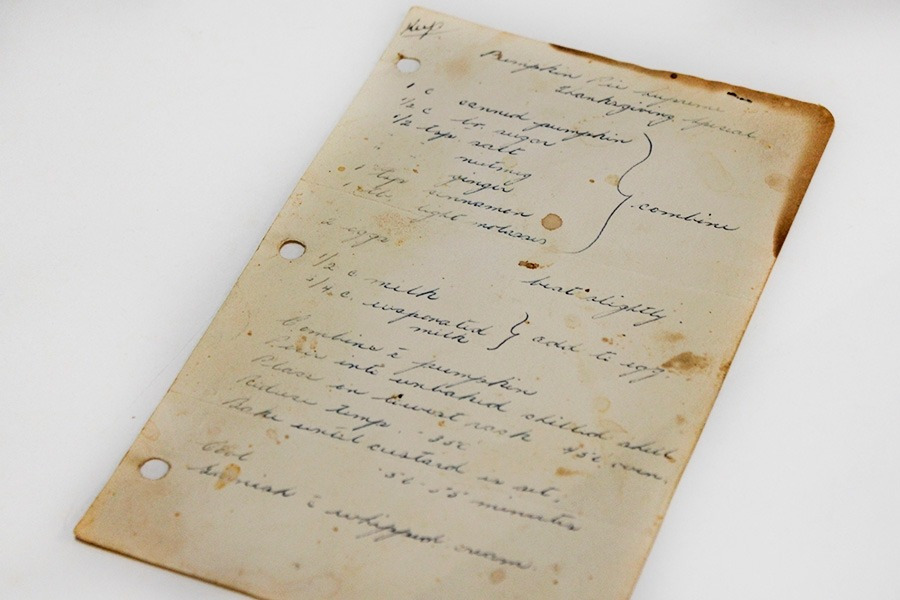 Keep
Pumpkin Pie Supreme
Thanksgiving Special
1 c canned pumpkin
1/2 c br. sugar
1/2 tsp salt
" " nutmeg
" " ginger
1 tsp cinnamon
1 tbl. light molasses
} combine
2 eggs beat slightly.
1/2 c milk
3/4 c. evaporated milk } add to egg.
Combine c̄ pumpkin
Pour into unbaked chilled shell
Place in lowest rack 450 oven.
Reduce temp. 350
Bake until custard is set.
50-55 minutes
Cool
Garnish c̄ whipped cream.